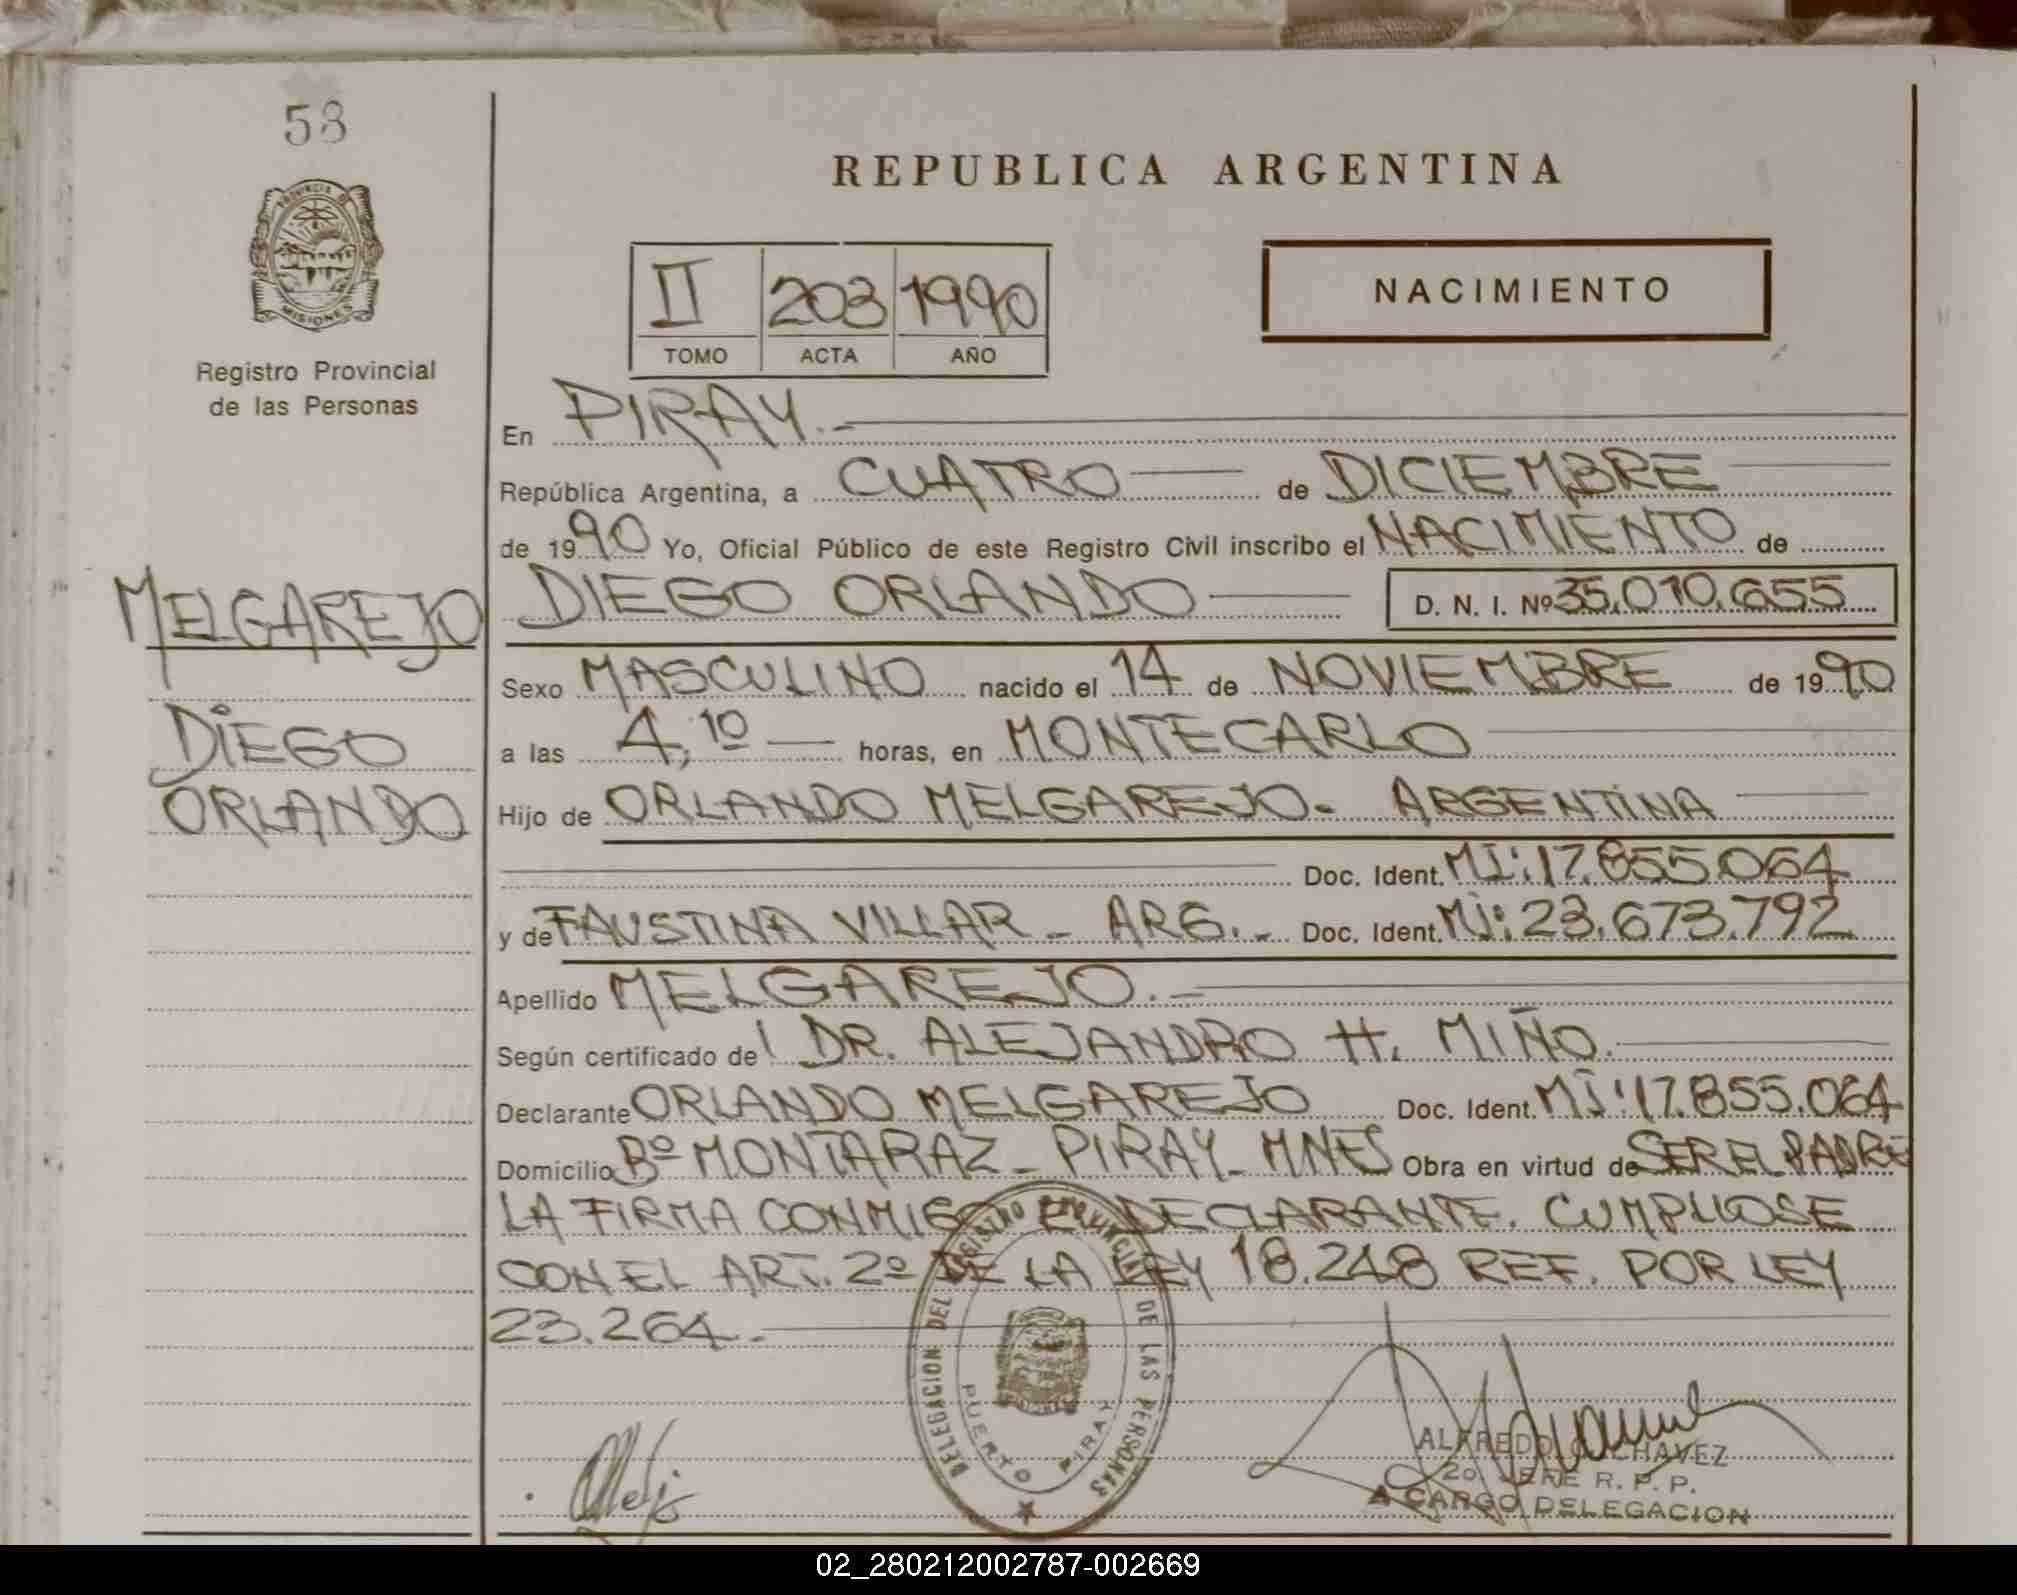 58
REPUBLICA ARGENTINA
PROVINCIA DE
MISIONES
Registro Provincial
de las Personas
II 203 1990
TOMO ACTA AÑO
NACIMIENTO
En PIRAY.-
República Argentina, a CUATRO de DICIEMBRE
de 1990 Yo, Oficial Público de este Registro Civil inscribo el NACIMIENTO de
MELGAREJO
DIEGO
ORLANDO
DIEGO ORLANDO D. N. I. Nº 35.010.655
Sexo MASCULINO nacido el 14 de NOVIEMBRE de 1990
a las 4,10 horas, en MONTECARLO
Hijo de ORLANDO MELGAREJO- ARGENTINA
Doc. Ident. MI: 17.855.064
y de FAUSTINA VILLAR - ARG.- Doc. Ident. MI: 23.673.792
Apellido MELGAREJO.-
Según certificado de DR. ALEJANDRO H. MIÑO.
Declarante ORLANDO MELGAREJO Doc. Ident. MI: 17.855.064
Domicilio Bº MONTARAZ - PIRAY - MNES Obra en virtud de SER EL PADRE
LA FIRMA CONMIGO EL DECLARANTE. CUMPLIOSE
CON EL ART. 2º DE LA LEY 18.248 REF. POR LEY
23.264.-
DELEGACION DEL REGISTRO PROVINCIAL DE LAS PERSONAS
PUERTO PIRAY
ALFREDO CHAVEZ
2º JEFE R. P. P.
A CARGO DELEGACION
02_280212002787-002669